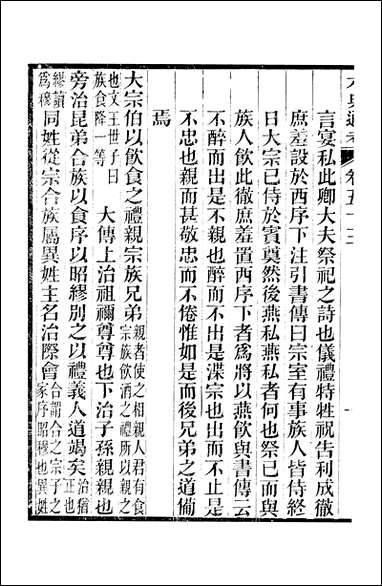 六典通考 卷五十三
言宴私此卿大夫祭祀之詩也儀禮特牲祝告利成徹
庶羞設於西序下注引書傳曰宗室有事族人皆侍終
日大宗已侍於賓奠然後燕私燕私者何也祭已而與
族人飲此徹庶羞置西序下者爲將以燕飲與書傳云
不醉而出是不親也醉而不出是渫宗也出而不止是
不忠也親而甚敬忠而不倦惟如是而後兄弟之道備
焉
大宗伯以飲食之禮親宗族兄弟親者使之相親人君有食宗族飲酒之禮所以親之
也文王世子曰族食降一等大傳上治祖禰尊尊也下治子孫親親也
旁治昆弟合族以食序以昭繆別之以禮義人道竭矣治猶正也
繆讀爲穆同姓從宗合族屬異姓主名治際會合謂合之宗子之家序昭穆也異姓